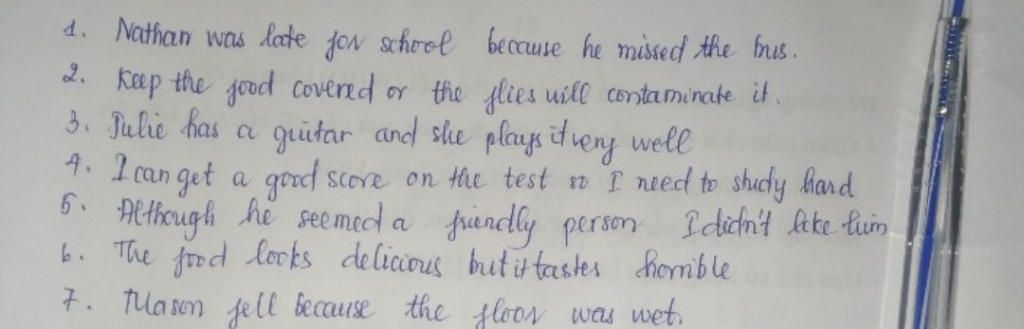 1. Nathan was late for school because he missed the bus.
2. Keep the food covered or the flies will contaminate it.
3. Julie has a guitar and she plays it very well
4. I can get a good score on the test so I need to study hard
5. Although he seemed a friendly person I didn't like him
6. The food looks delicious but it tastes horrible
7. Mason fell because the floor was wet.